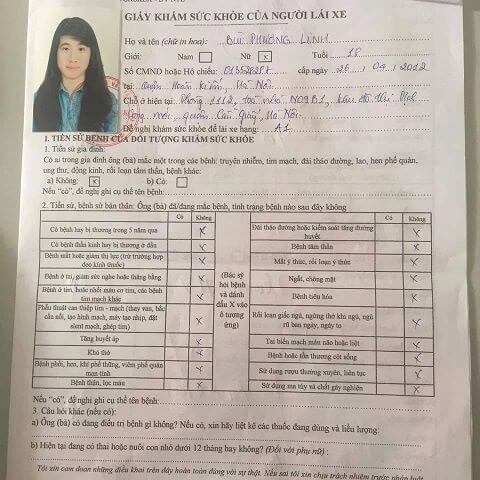 GIẤY KHÁM SỨC KHỎE CỦA NGƯỜI LÁI XE
Họ và tên (chữ in hoa): BÙI PHƯƠNG LINH
Giới: Nam Nữ x Tuổi 18
Số CMND hoặc Hộ chiếu: cấp ngày 26 / 04 / 2012
tại: Quận Hoàn Kiếm, Hà Nội
Chỗ ở hiện tại: Phòng 1112, toà nhà N09B1, khu đô thị Dịch
Vọng, quận Cầu Giấy, Hà Nội.
Đề nghị khám sức khỏe để lái xe hạng: A1
I. TIỀN SỬ BỆNH CỦA ĐỐI TƯỢNG KHÁM SỨC KHỎE
1. Tiền sử gia đình:
Có ai trong gia đình ông (bà) mắc một trong các bệnh: truyền nhiễm, tim mạch, đái tháo đường, lao, hen phế quản,
ung thư, động kinh, rối loạn tâm thần, bệnh khác:
a) Không: x b) Có:
Nếu "có", đề nghị ghi cụ thể tên bệnh:
2. Tiền sử, bệnh sử bản thân: Ông (bà) đã/đang mắc bệnh, tình trạng bệnh nào sau đây không
Có Không
Có bệnh hay bị thương trong 5 năm qua x
Có bệnh thần kinh hay bị thương ở đầu x
Bệnh mắt hoặc giảm thị lực (trừ trường hợp
đeo kính thuốc) x
Bệnh ở tai, giảm sức nghe hoặc thăng bằng x
Bệnh ở tim, hoặc nhồi máu cơ tim, các bệnh
tim mạch khác x
Phẫu thuật can thiệp tim - mạch (thay van, bắc
cầu nối, tạo hình mạch, máy tạo nhịp, đặt
stent mạch, ghép tim) x
Tăng huyết áp x
Khó thở x
Bệnh phổi, hen, khí phế thũng, viêm phế quản
mạn tính x
Bệnh thận, lọc máu x
(Bác sỹ
hỏi bệnh
và đánh
dấu X vào
ô tương
ứng)
Có Không
Đái tháo đường hoặc kiểm soát tăng đường
huyết x
Bệnh tâm thần x
Mất ý thức, rối loạn ý thức x
Ngất, chóng mặt x
Bệnh tiêu hóa x
Rối loạn giấc ngủ, ngừng thở khi ngủ, ngủ
rũ ban ngày, ngáy to x
Tai biến mạch máu não hoặc liệt x
Bệnh hoặc tổn thương cột sống x
Sử dụng rượu thường xuyên, liên tục x
Sử dụng ma túy và chất gây nghiện x
Nếu "có", đề nghị ghi cụ thể tên bệnh:
3. Câu hỏi khác (nếu có):
a) Ông (bà) có đang điều trị bệnh gì không? Nếu có, xin hãy liệt kê các thuốc đang dùng và liều lượng:
b) Hiện tại đang có thai hoặc nuôi con nhỏ dưới 12 tháng hay không? (Đối với phụ nữ) :
Tôi xin cam đoan những điều khai trên đây hoàn toàn đúng với sự thật. Nếu sai tôi xin chịu trách nhiệm trước pháp luật